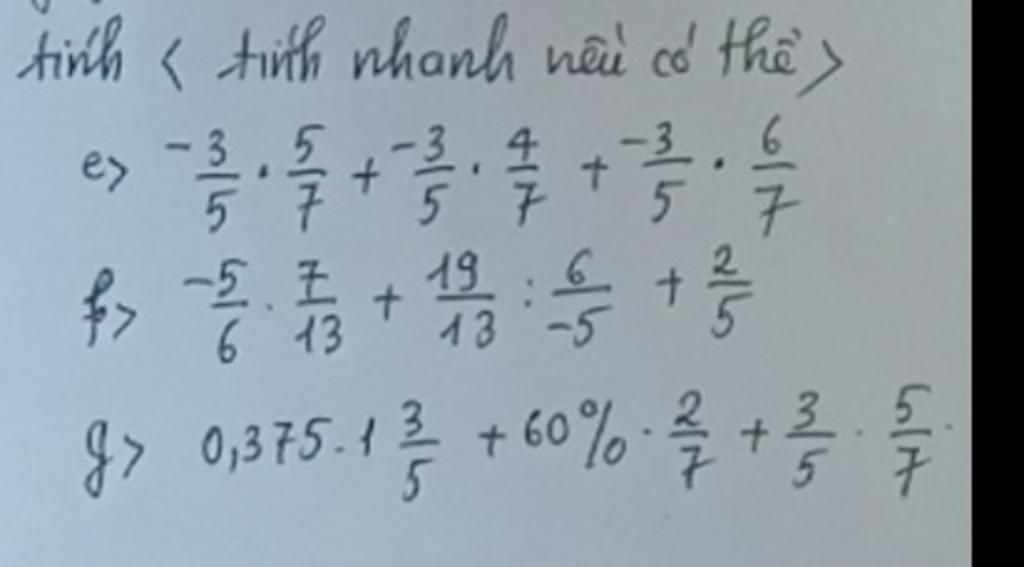 tính < tính nhanh nếu có thể >
e> -3/5 . 5/7 + -3/5 . 4/7 + -3/5 . 6/7
f> -5/6 . 7/13 + 19/13 : 6/-5 + 2/5
g> 0,375 . 1 3/5 + 60% . 2/7 + 3/5 . 5/7 .